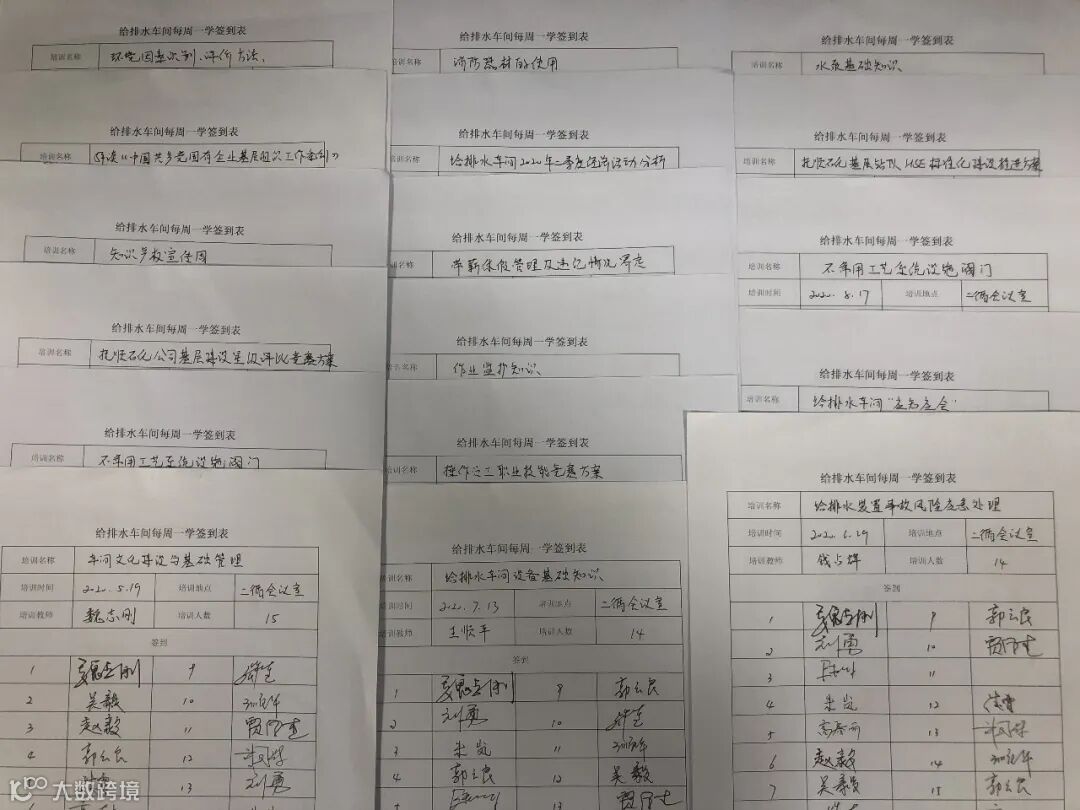 给排水车间每周一学签到表
培训名称 环境因素识别、评价方法、
给排水车间每周一学签到表
培训名称 解读《中国共产党国有企业基层组织工作条例》
给排水车间每周一学签到表
培训名称 知识产权宣传周
给排水车间每周一学签到表
培训名称 抚顺石化公司基层建设星级评比竞赛方案
给排水车间每周一学签到表
培训名称 不常用工艺系统设施阀门
给排水车间每周一学签到表
培训名称 车间文化建设与基础管理
培训时间 2020.5.19 培训地点 二循会议室
培训教师 魏志刚 培训人数 15
签到
1 魏志刚 9
2 吴毅 10
3 赵毅 11 贾, 
4 郭云良 12
13 刘勇
给排水车间每周一学签到表
培训名称 消防器材的使用
给排水车间每周一学签到表
培训名称 给排水车间2020年二季度经济活动分析
给排水车间每周一学签到表
培训名称 带薪休假管理及违纪情况界定
给排水车间每周一学签到表
培训名称 作业监护知识
给排水车间每周一学签到表
培训名称 操作之工职业技能竞赛方案
给排水车间每周一学签到表
培训名称 给排水车间设备基础知识
培训时间 2020.7.13 培训地点 二循会议室
培训教师 王顺平 培训人数 14
签到
1 魏志刚 9 郭云良
2 刘勇 10
3 朱岚 11
4 郭云良 12 吴毅
13
给排水车间每周一学签到表
培训名称 水泵基础知识
给排水车间每周一学签到表
培训名称 抚顺石化基层站队HSE标准化建设推进方案
给排水车间每周一学签到表
培训名称 不常用工艺系统设施阀门
培训时间 2020.8.17 培训地点 二循会议室
给排水车间每周一学签到表
培训名称 给排水车间“应知应会”
给排水车间每周一学签到表
培训名称 给排水装置事故风险应急处理
培训时间 2020.6.29 培训地点 二循会议室
培训教师 钱占辉 培训人数 14
签到
1 魏志刚 9 郭云良
2 刘勇 10
3 11
4 朱岚 12
5 13
6 赵毅 14
7 吴毅 15 郭云良
大数跨境